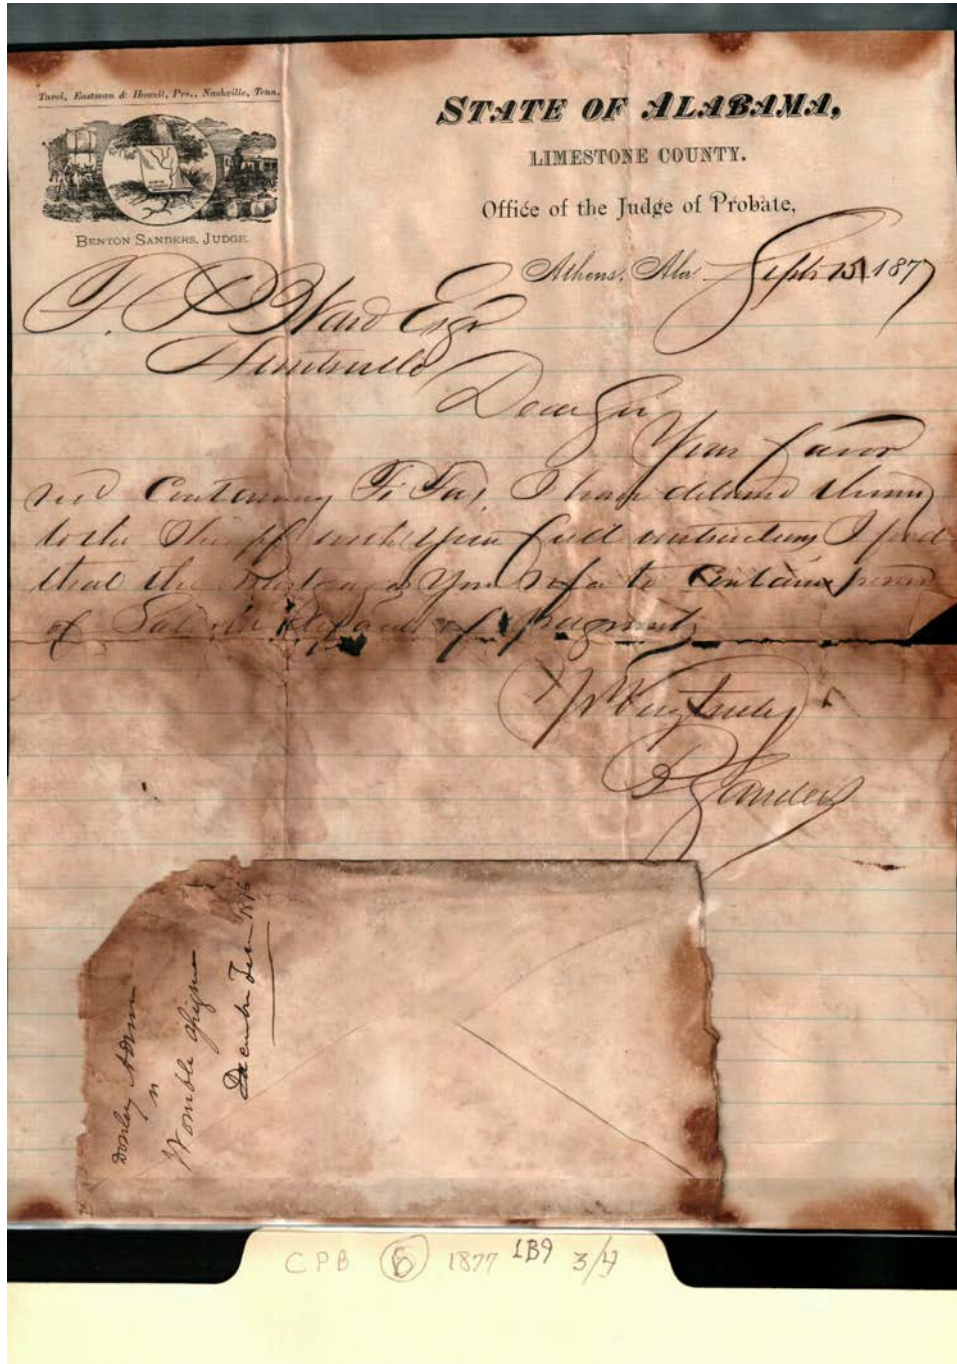 Tavel, Eastman & Howell, Prs., Nashville, Tenn.
STATE OF ALABAMA,
LIMESTONE COUNTY.
Office of the Judge of Probate,
BENTON SANDERS, JUDGE.
Athens, Ala Sept 15 1877
T. P. Ward Esqr
Huntsville
Dear Sir
Your favor
recd Containing Fi Fas, I have delivered them
to the Sheriff with your full instructions I find
that the Mortgage you refer to Contains power
of Sale in default of payment
Yr Very truly
B Sanders
Donley Admr
vs
Womble
December Term 1876
CPB 6 1877 1B9 3/4